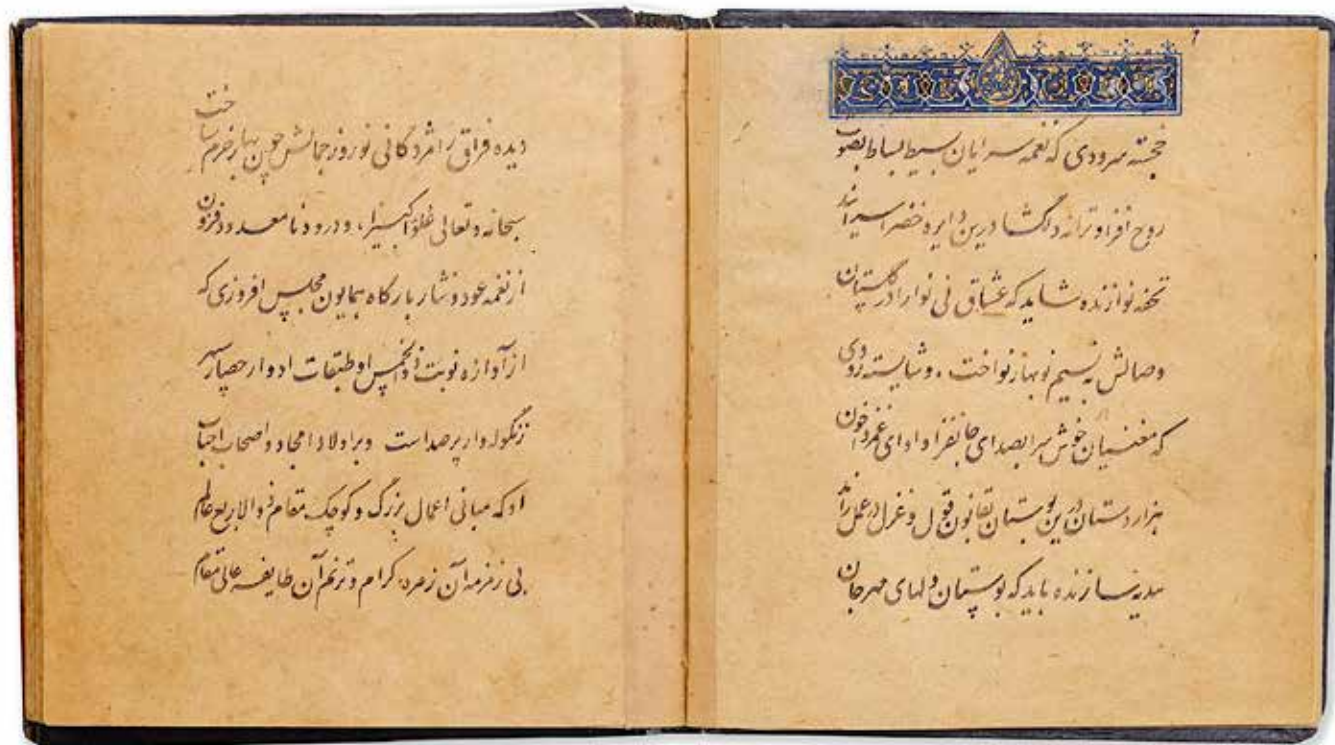 خجسته سرودی که نغمه سرایان بسیط بساط بصوت
روح افزا و ترانه دلگشا درین دایره خضرا سرایند
تحفه نوازنده شاید که عشاق بی نوا را در گلستان
وصالش به نسیم نوبهار نواخت و شایسته رودی
که مغنیان خوش سرا بصدای جانفزا و ادای غمزدا چون
هزاردستان درین بوستان بقانون قول و غزل در عمل
سازنده باید که بوستان دلهای مهرجان
دیده فراق را مژدگانی نوروز جمالش چون بهار خرم ساخت
سبحانه و تعالی علوا کبیرا، و درود نامعدود افزون
از نغمه عود و نثار بارگاه همایون مجلس افروزی که
از آوازه نوبت او طبقات ادوار حصار سپهر
زنگوله وار پرصداست و بر اولاد امجاد و اصحاب احباب
او که مبانی اعمال بزرگ و کوچک مقام عالم
بی زمزمه آن زمره کرام و ترنم آن طایفه عالی مقام